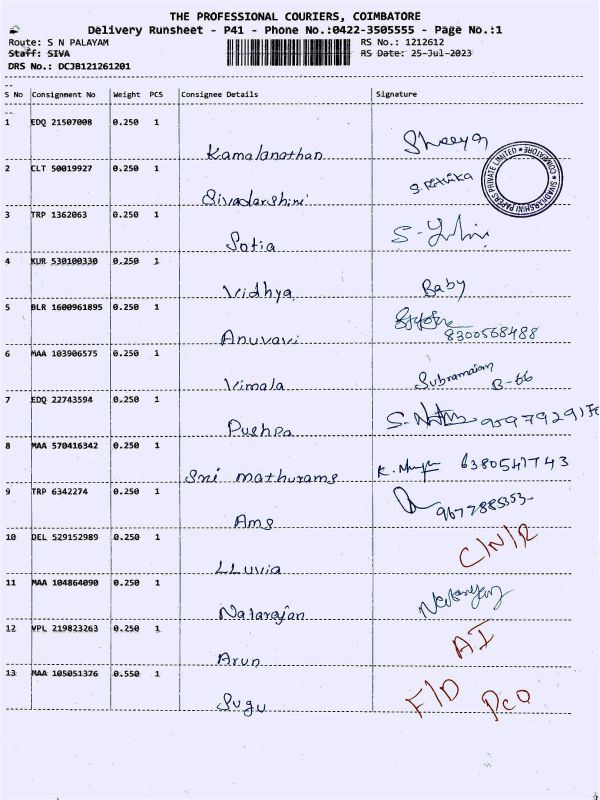 THE PROFESSIONAL COURIERS, COIMBATORE
Delivery Runsheet - P41 - Phone No.:0422-3505555 - Page No.:1
Route: S N PALAYAM RS No.: 1212612
Staff: SIVA RS Date: 25-Jul-2023
DRS No.: DCJB121261201
S No Consignment No Weight PCS Consignee Details Signature
1 EDQ 21507008 0.250 1 Kamalanathan
2 CLT 50019927 0.250 1 Sivadarshini
SIVADHARSHINI PAPERS PRIVATE LIMITED * COIMBATORE *
3 TRP 1362063 0.250 1 Sofia
4 KUR 530100330 0.250 1 Vidhya Baby
5 BLR 1600961895 0.250 1 Anuvavi 8300568488
6 MAA 103906575 0.250 1 Vimala Subramaiam B-66
7 EDQ 22743594 0.250 1 Pushpa
8 MAA 570416342 0.250 1 Sri mathurams 6380547743
9 TRP 6342274 0.250 1 Ams 9677885353
10 DEL 529152989 0.250 1 LLuvia C/N/R
11 MAA 104864090 0.250 1 Natarajan
12 VPL 219823263 0.250 1 Arun AI
13 MAA 105051376 0.550 1 Sugu F/D PCO